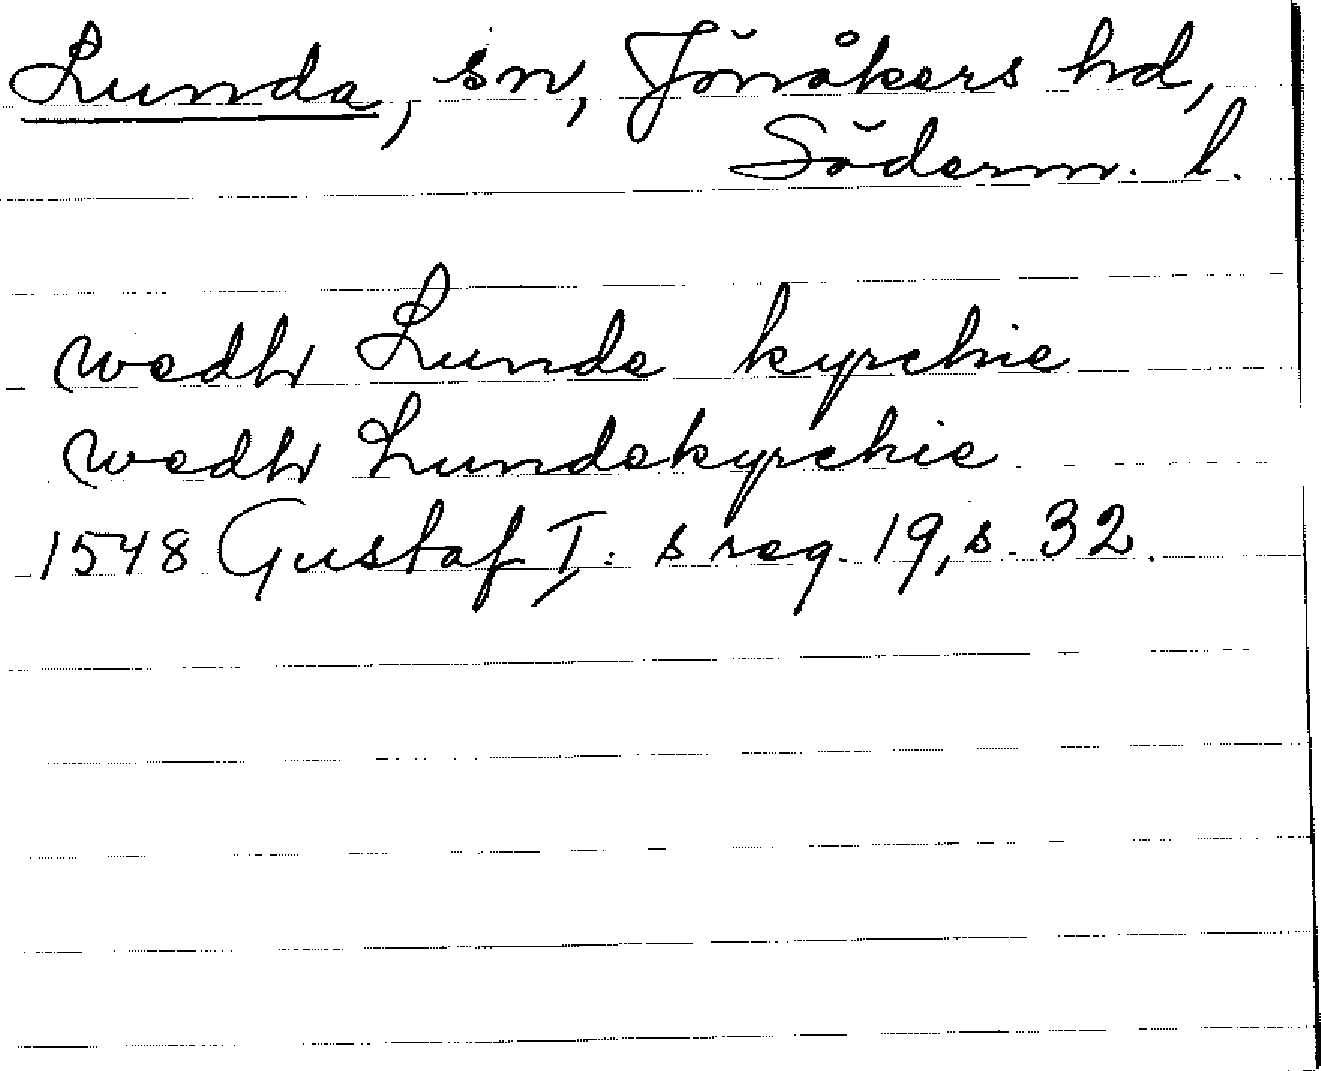 Lunda, sn, Jönåkers hd,
Söderm. l.
wedh Lunde kyrchie
wedh Lundekyrchie
1548 Gustaf I: s reg. 19, s. 32.